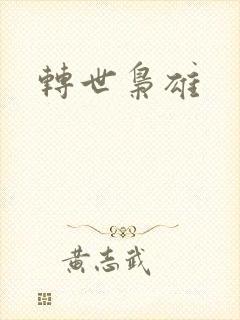 轉世梟雄
黃志武